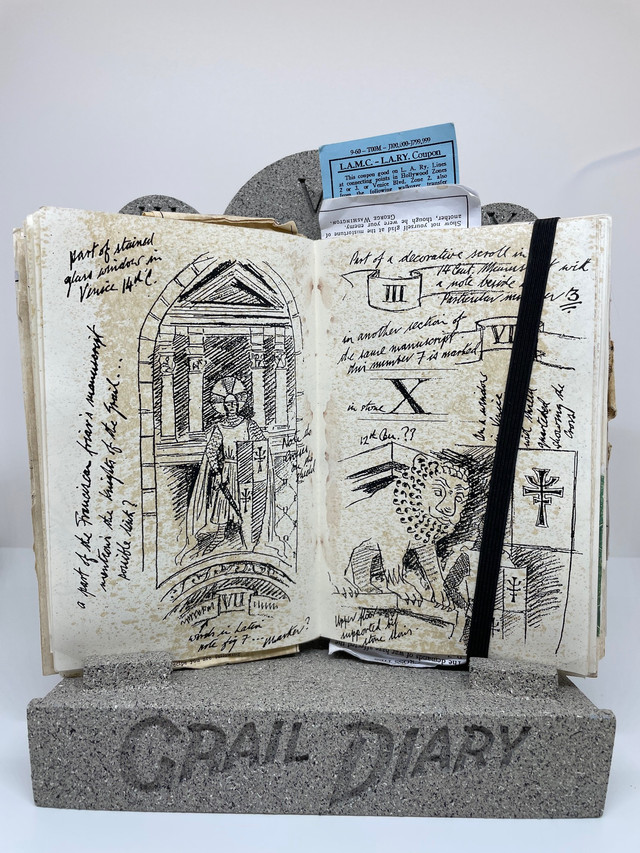 9-60 – T00M – J100,000-J799,999
L.A.M.C. – L.A.RY. Coupon
This coupon good on L. A. Ry. Lines
at connecting points in Hollywood Zones
2 or 3, or Venice Blvd. Zone 2, also
from the following walkover transfer
Show not yourself glad at the misfortune of
another, though he were your enemy.
GEORGE WASHINGTON
part of stained
glass window in
Venice 14th C.
a part of the Franciscan friar's manuscript
mentions the knights of the Grail...
possible link?
VII
words in Latin
note fig 7... Marker?
Part of a decorative scroll in
14 Cent. Manuscript with
a note beside
Particular number 3
III
in another section of
the same manuscript
this number 7 is marked
VII
in stone X
12th Cen. ??
Venice
cross
Upper floor
supported by
stone lions
The demands of
GRAIL DIARY